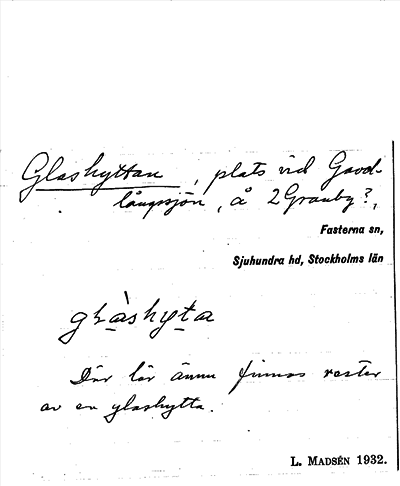 Glashyttan, plats vid Gavd-
långsjön, å 2 Granby?,
Fasterna sn,
Sjuhundra hd, Stockholms län
glàshyta
Där lär ännu finnas rester
av en glashytta.
L. MADSÉN 1932.